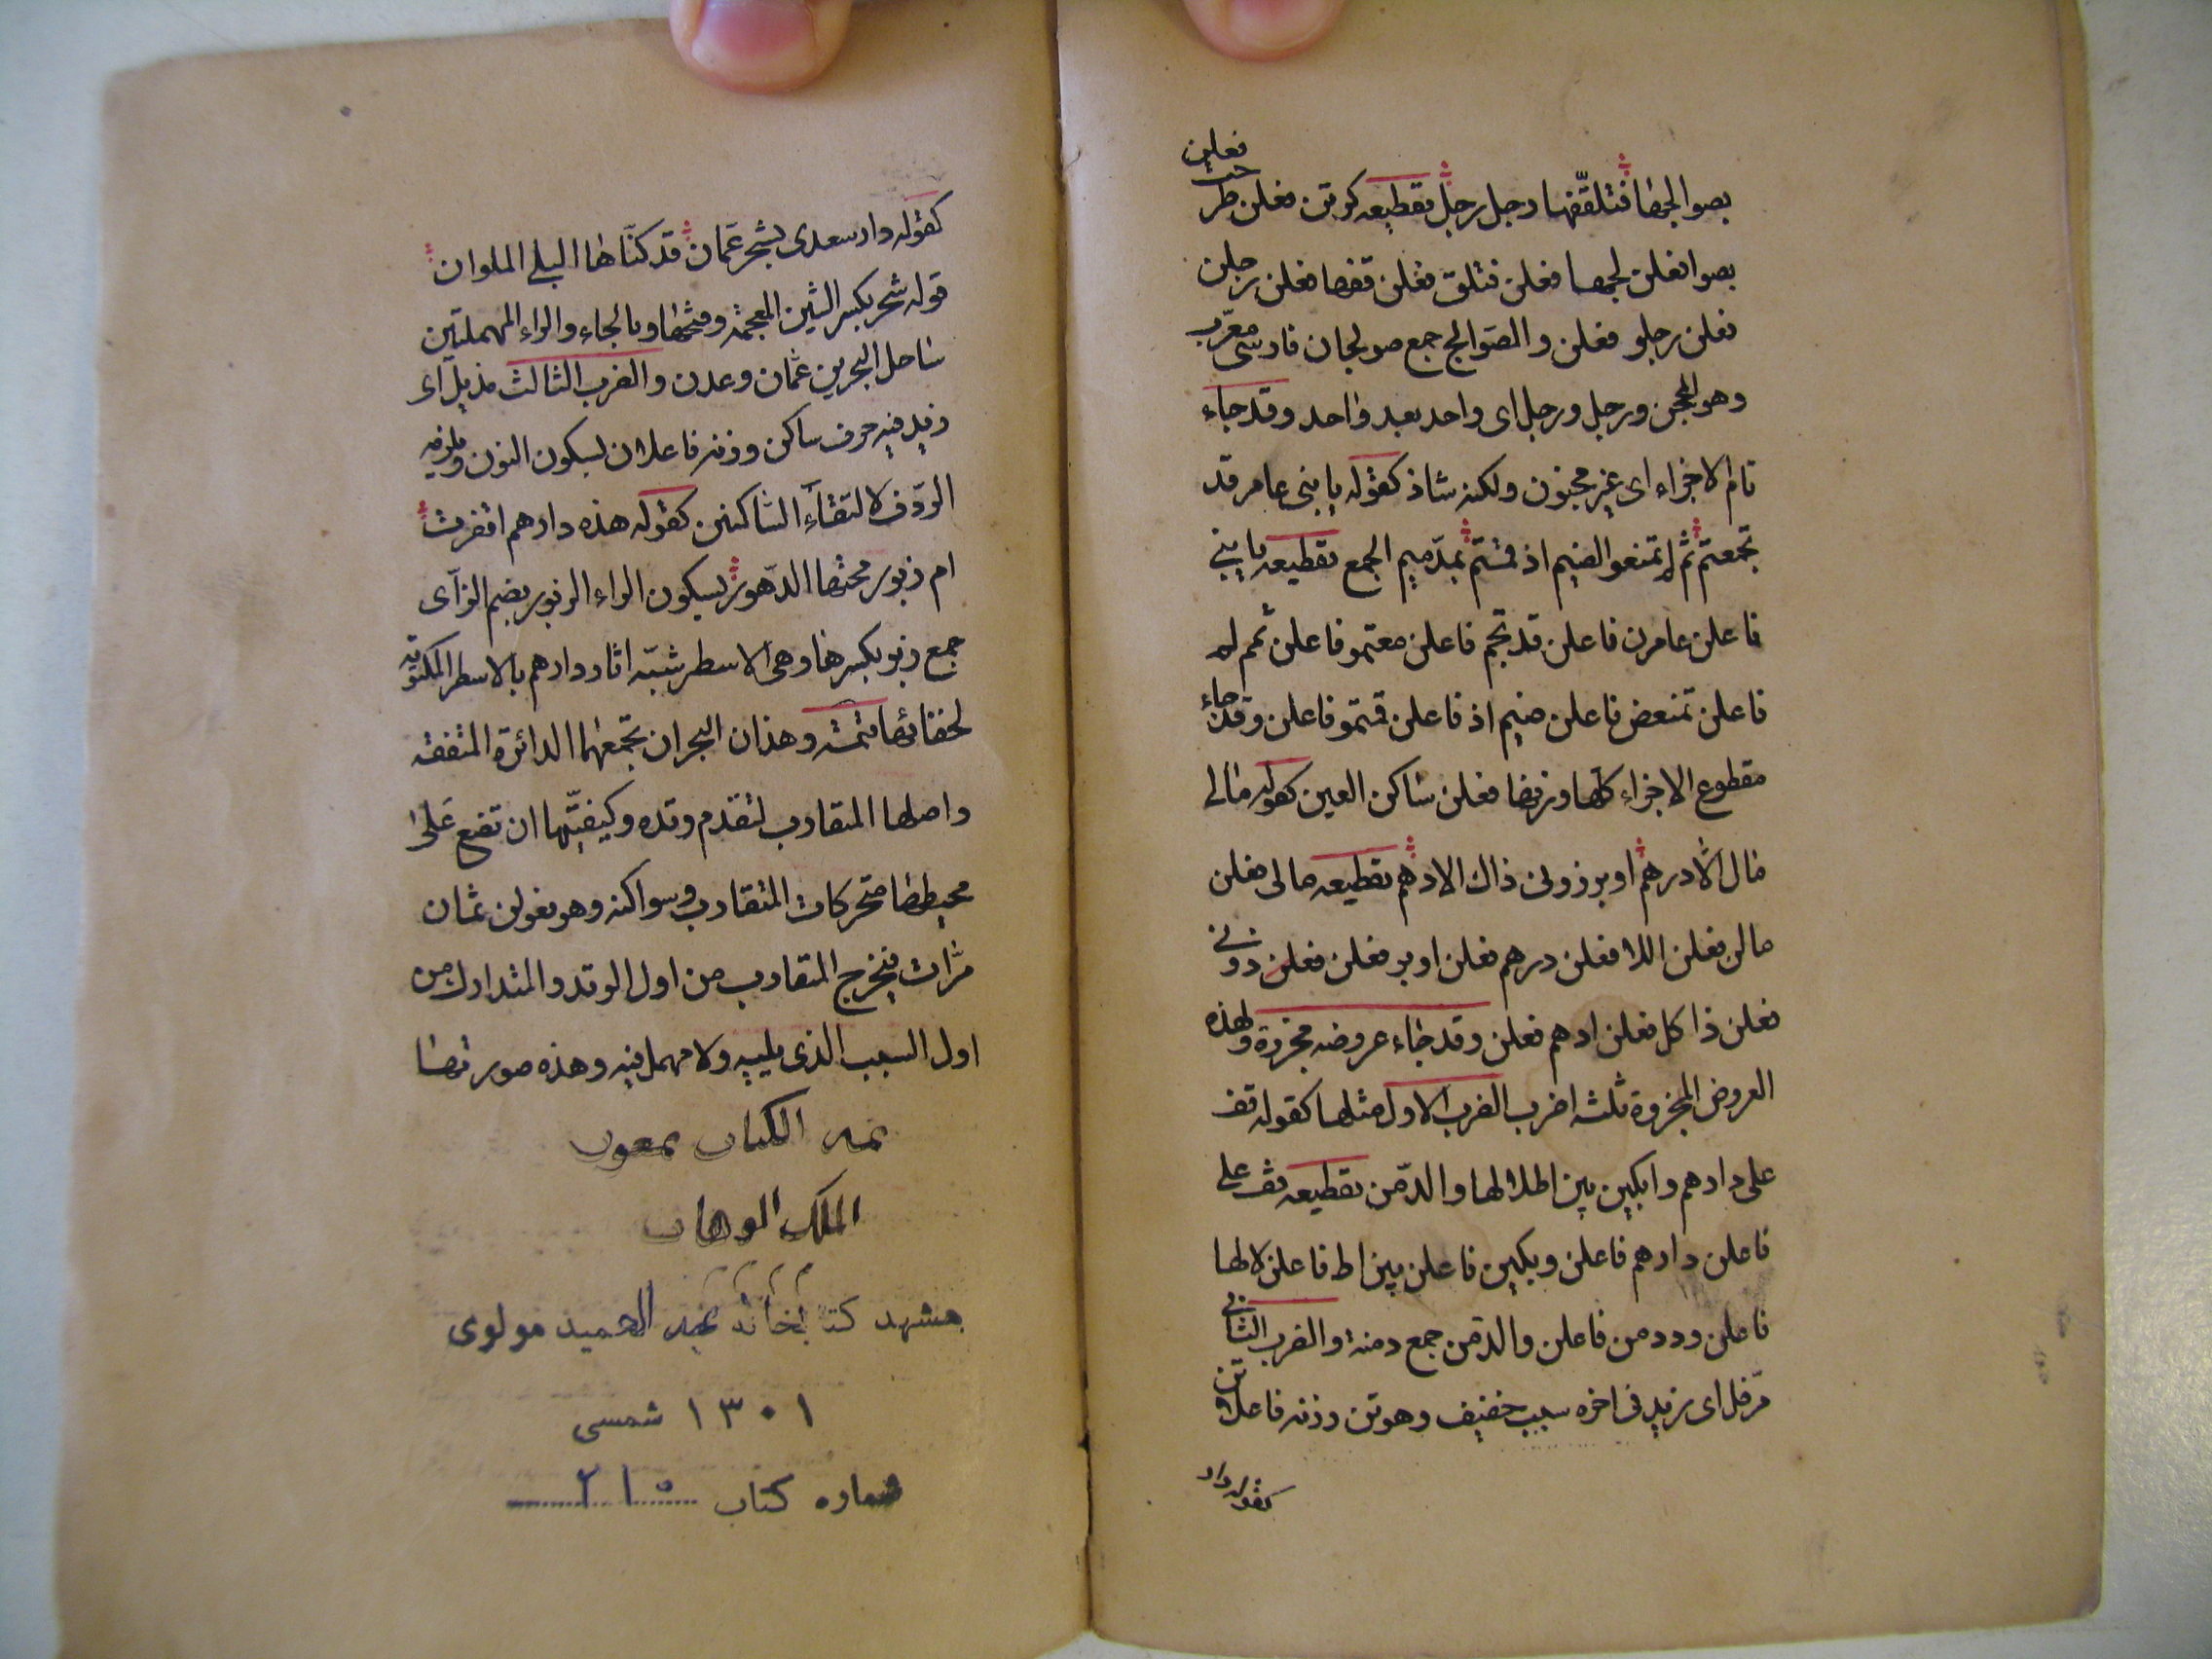 فعلن
بصوالجها فتلقّفها رجل رجل تقطيعه كرتن فعلن طرحت
بصوا فعلن لجها فعلن فتلق فعلن قفها فعلن رجلن
فعلن رجلو فعلن و الصوالج جمع صولجان فارسى معرّب
وهو المحجن ورجل ورجل اى واحد بعد واحد وقد جاء
تام الاجزاء اى غير مخبون ولكنه شاذ كقوله يا بنى عامر قد
تجمعتم ثم لم تمنعوا الضيم اذ قمتم بمدّ ميم الجمع تقطيعه يا بنى
فاعلن عامرن فاعلن قد تجم فاعلن معتمو فاعلن ثمم لم
فاعلن تمنعض فاعلن ضيم اذ فاعلن قمتمو فاعلن وقد جاء
مقطوع الاجزاء كلها وزنها فعلن ساكن العين كقوله مالى
مال الّا درهم او برذونى ذاك الادهم تقطيعه مالى فعلن
مالن فعلن اللا فعلن درهم فعلن اوبر فعلن فعلن ذونى
فعلن ذا كل فعلن ادهم فعلن وقد جاء عروضه مجزوة ولهذه
العروض المجزوة ثلثه اضرب الضرب الاول مثلها كقوله قف
على دارهم وابكين بين اطلالها والدّمن تقطيعه قف على
فاعلن دارهم فاعلن وبكين فاعلن بين اط فاعلن لالها
فاعلن وددمن فاعلن والدّمن جمع دمنة والضرب الثانى
مرّفل اى زيد فى اخره سبب خفيف وهو تن وزنه فاعلاتن
كقوله دار
كقوله دار سعدى بشحر عمان قد كسّاها البلى الملوان
قوله شحر بكسر الشين المعجمة وفتحها وبالحاء والراء المهملتين
ساحل البحرين عمّان وعدن والضرب الثالث مذيل اى
زيد فيه حرف ساكن وزنه فاعلان بسكون النون ويلزمه
الرّدف لالتقاء الساكنين كقوله هذه دارهم اقفرت
ام زبور محتها الدّهور بسكون الراء الزبور بضم الزآى
جمع زبر بكسرها وهى الاسطر شبّه اثار دارهم بالاسطر المكتوبة
لخفائها تتمّه وهذان البحران تجمعهما الدائرة المتفقه
واصلها المتقارب لتقدّم وتده وكيفيّتها ان تضع على
محيطها متحركات المتقارب وسواكنه وهو فعولن ثمان
مرّات فيخرج المتقارب من اول الوتد والمتدارك من
اول السبب الذى يليه ولا مهمل فيه وهذه صورتها
تمت الكتاب بعون
الملك الوهاب
مشهد كتابخانه عبد الحميد مولوى
۱۳۰۱ شمسى
شماره كتاب ۲۱۵